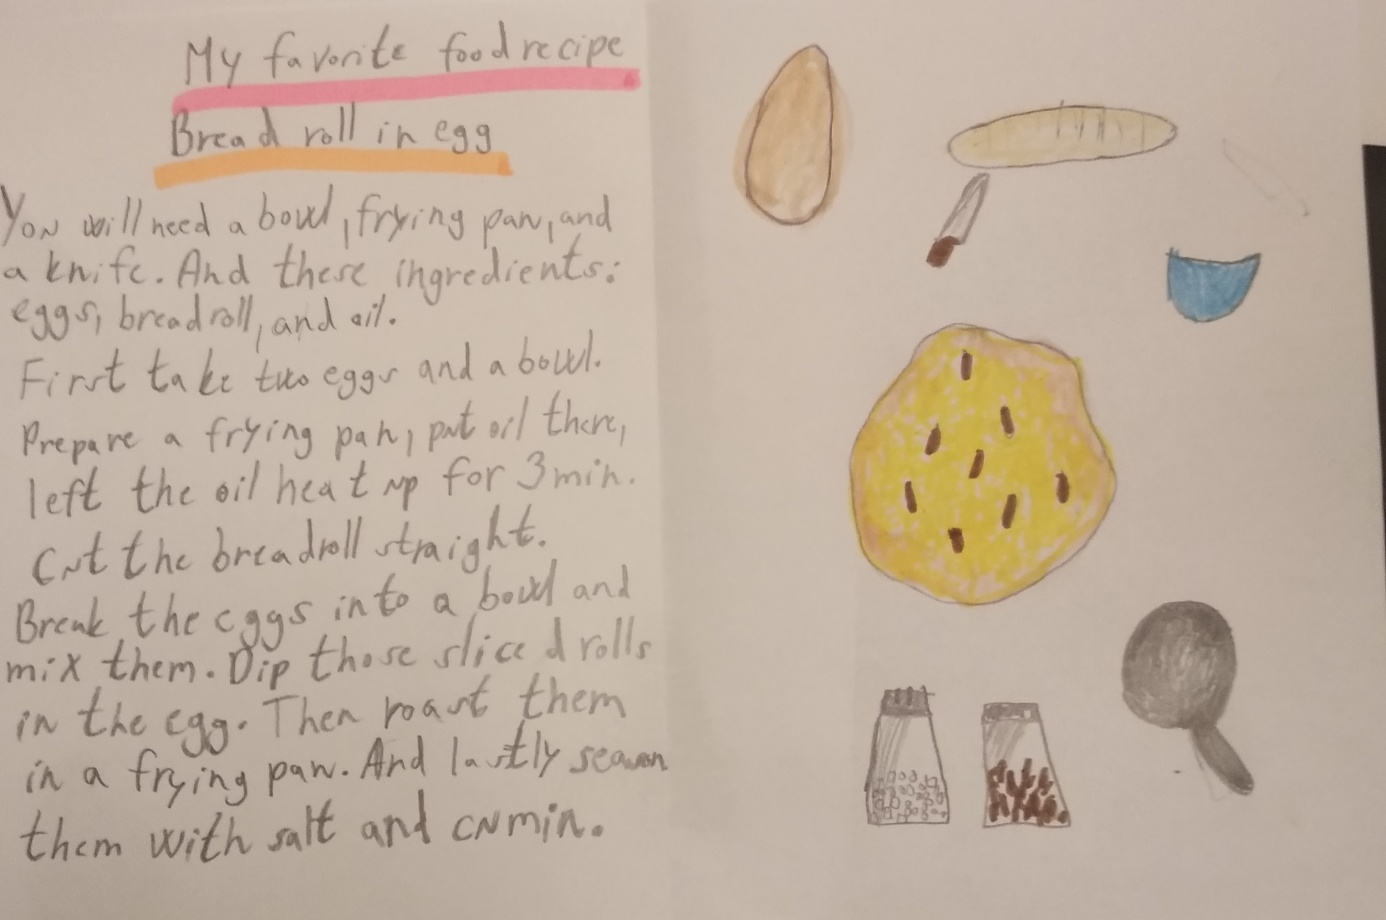 My favorite food recipe
Bread roll in egg
You will need a bowl, frying pan, and
a knife. And these ingredients:
eggs, bread roll, and oil.
First take two eggs and a bowl.
Prepare a frying pan, put oil there,
left the oil heat up for 3 min.
Cut the breadroll straight.
Break the eggs into a bowl and
mix them. Dip those sliced rolls
in the egg. Then roast them
in a frying pan. And lastly season
them with salt and cumin.